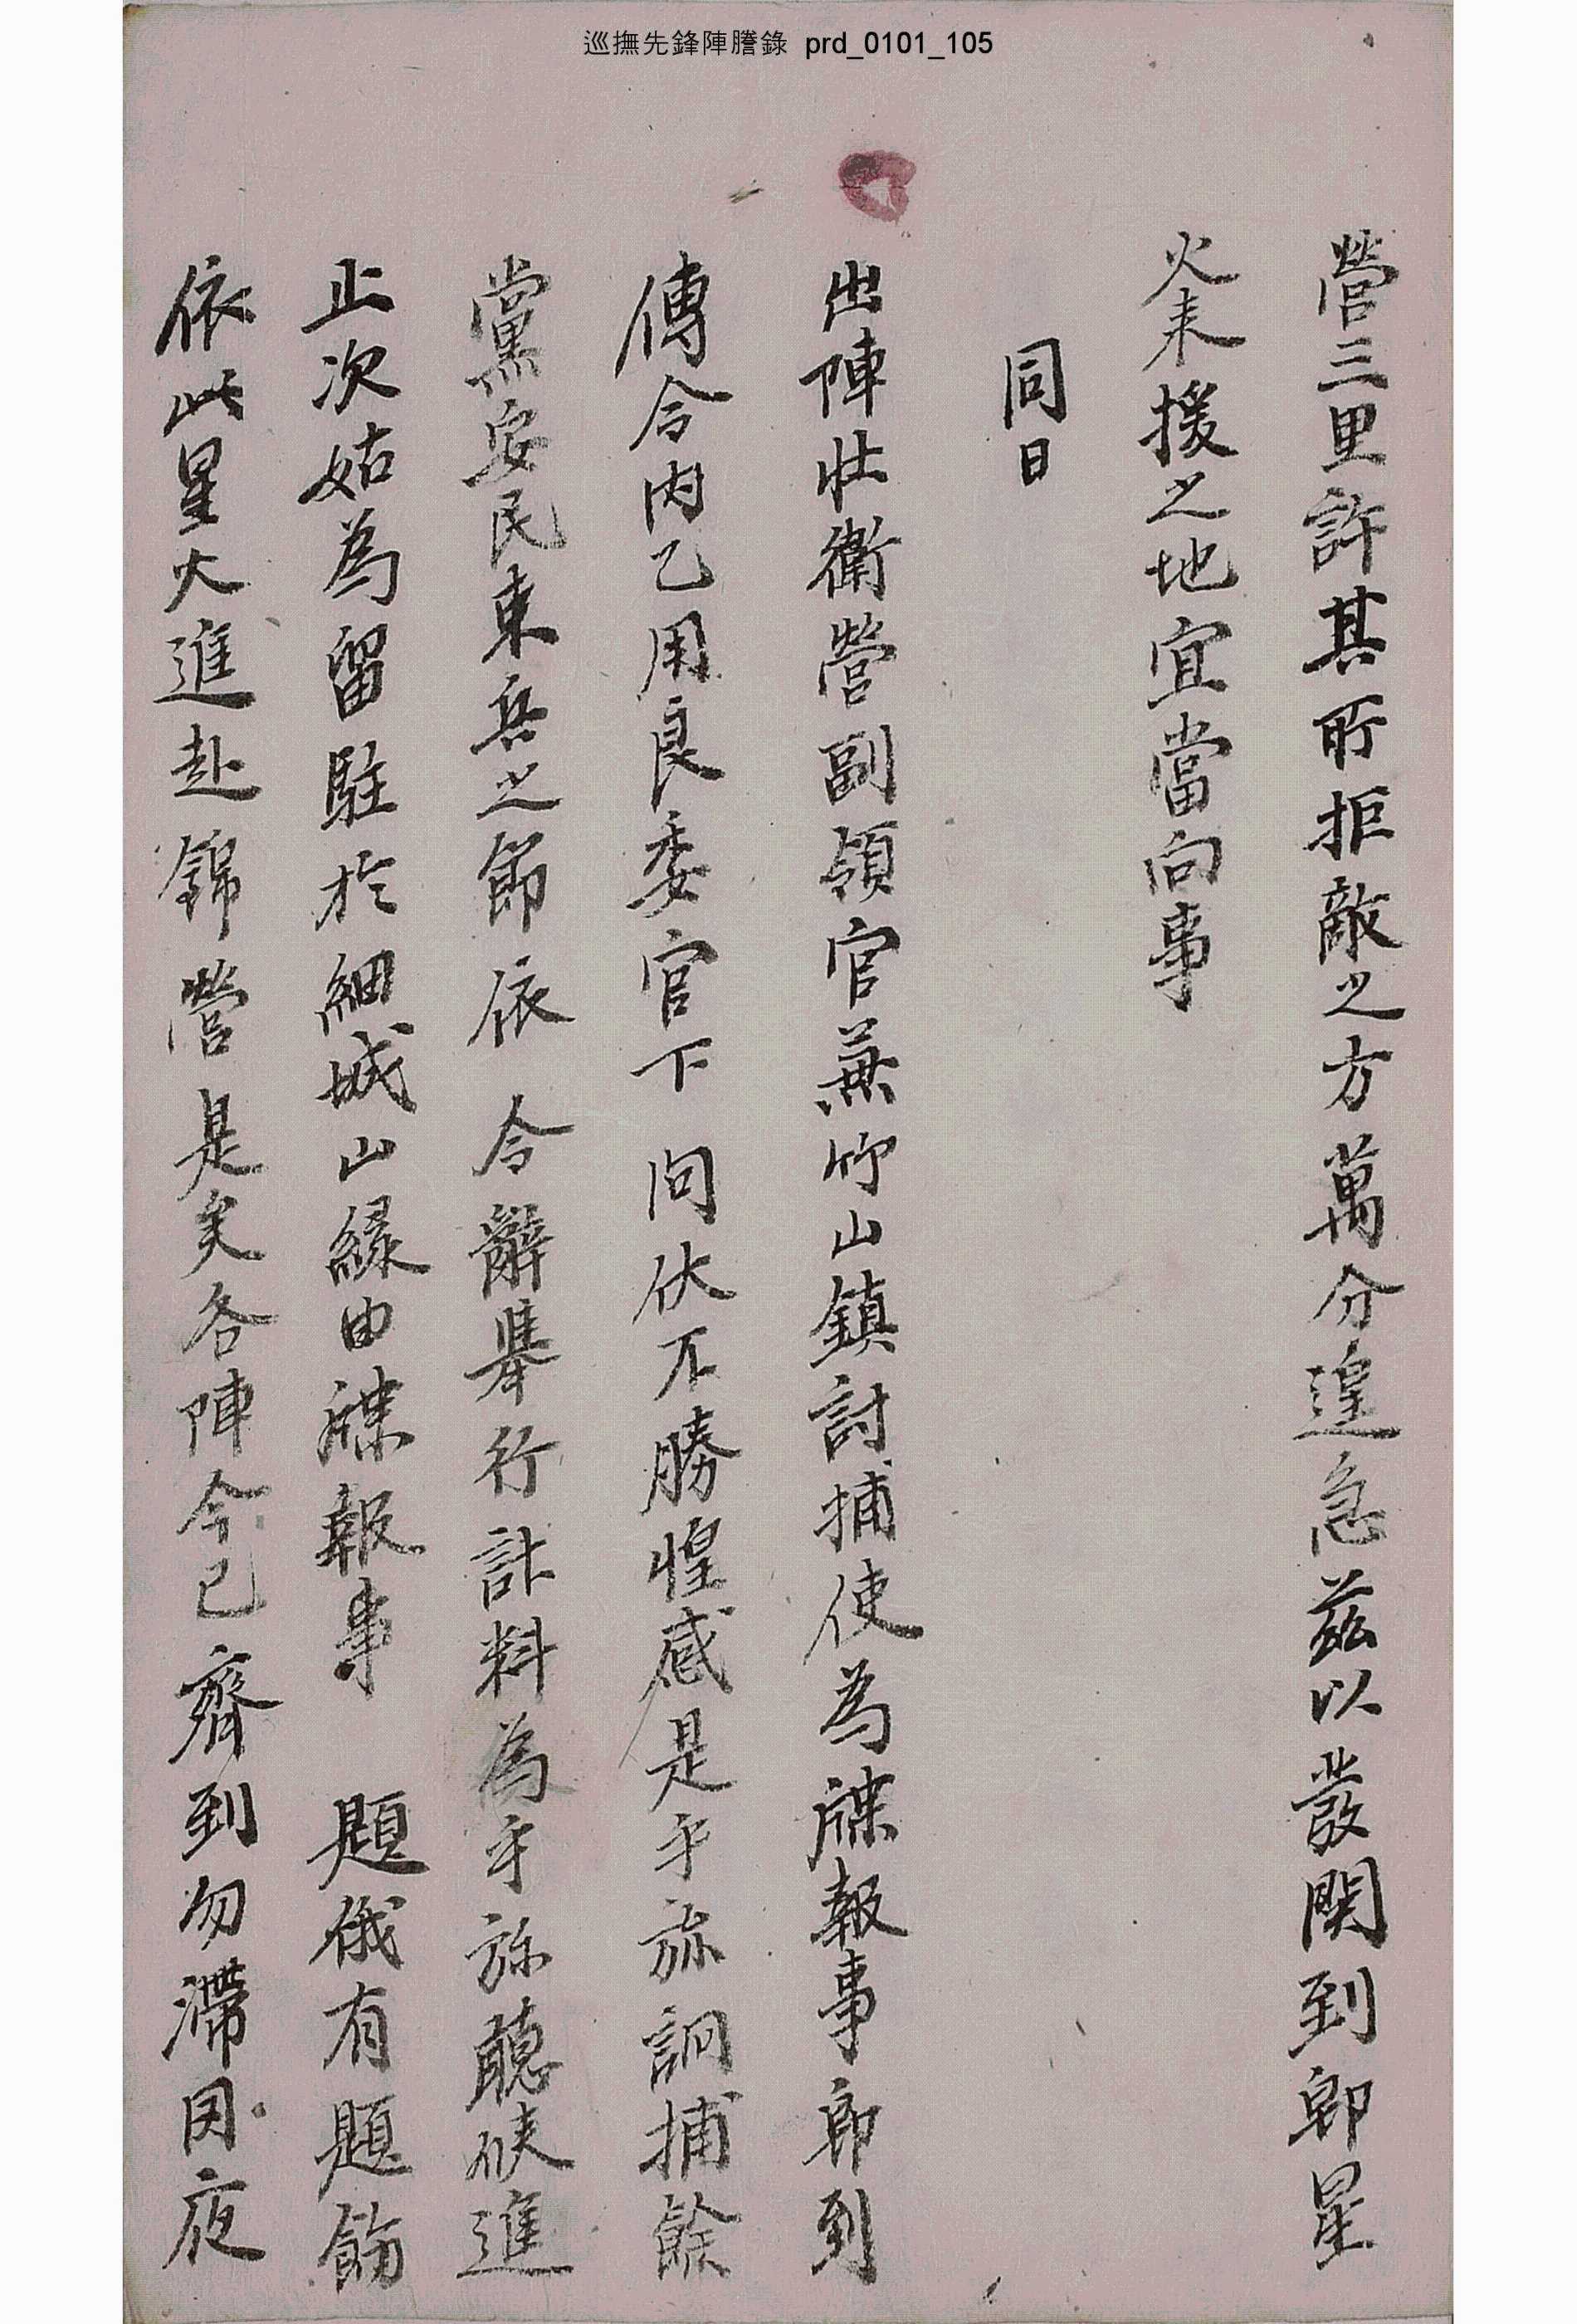 巡撫先鋒陣謄錄 prd_0101_105
營三里許其所拒敵之方萬分遑急茲以發関到卽星
火来援之地宜當向事
同日
出陣壯衛營副領官兼竹山鎮討捕使為牒報事卽到
傳令內乙用良委官下 問伏不勝惶感是乎旀詗捕餘
黨安民束兵之節依 令辭擧行計料為乎旀聽候進
止次姑為留駐於細城山緣由牒報事 題俄有題飭
依此星火進赴錦營是矣各陣今已齊到勿滯罔夜